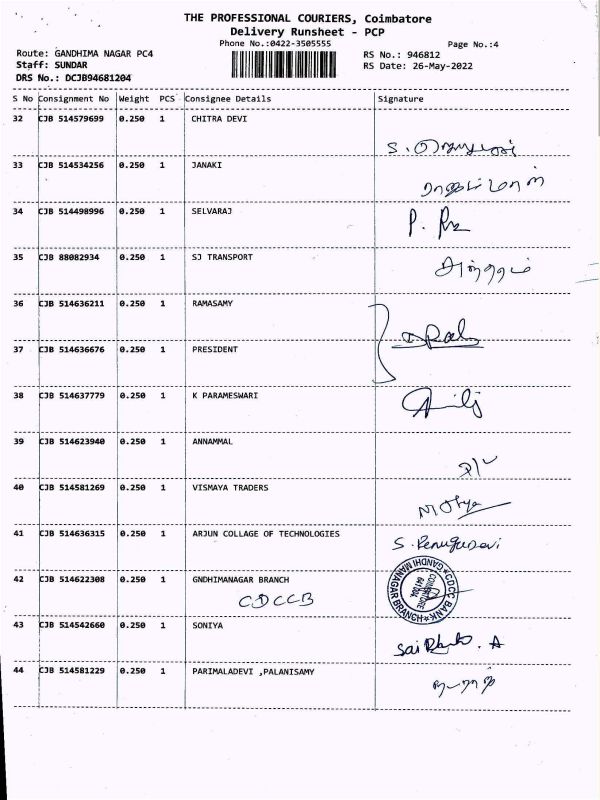 THE PROFESSIONAL COURIERS, Coimbatore
Delivery Runsheet - PCP
Phone No.:0422-3505555
Page No.:4
Route: GANDHIMA NAGAR PC4
RS No.: 946812
Staff: SUNDAR
RS Date: 26-May-2022
DRS No.: DCJB94681204
S No Consignment No Weight PCS Consignee Details Signature
32 CJB 514579699 0.250 1 CHITRA DEVI
33 CJB 514534256 0.250 1 JANAKI
34 CJB 514498996 0.250 1 SELVARAJ
35 CJB 88082934 0.250 1 SJ TRANSPORT
36 CJB 514636211 0.250 1 RAMASAMY
37 CJB 514636676 0.250 1 PRESIDENT
38 CJB 514637779 0.250 1 K PARAMESWARI
39 CJB 514623940 0.250 1 ANNAMMAL
40 CJB 514581269 0.250 1 VISMAYA TRADERS
41 CJB 514636315 0.250 1 ARJUN COLLAGE OF TECHNOLOGIES
S. Renugadevi
42 CJB 514622308 0.250 1 GNDHIMANAGAR BRANCH
CDCCB
CDCC BANK GANDHI MANAGAR BRANCH
COIMBATORE
43 CJB 514542660 0.250 1 SONIYA
44 CJB 514581229 0.250 1 PARIMALADEVI ,PALANISAMY